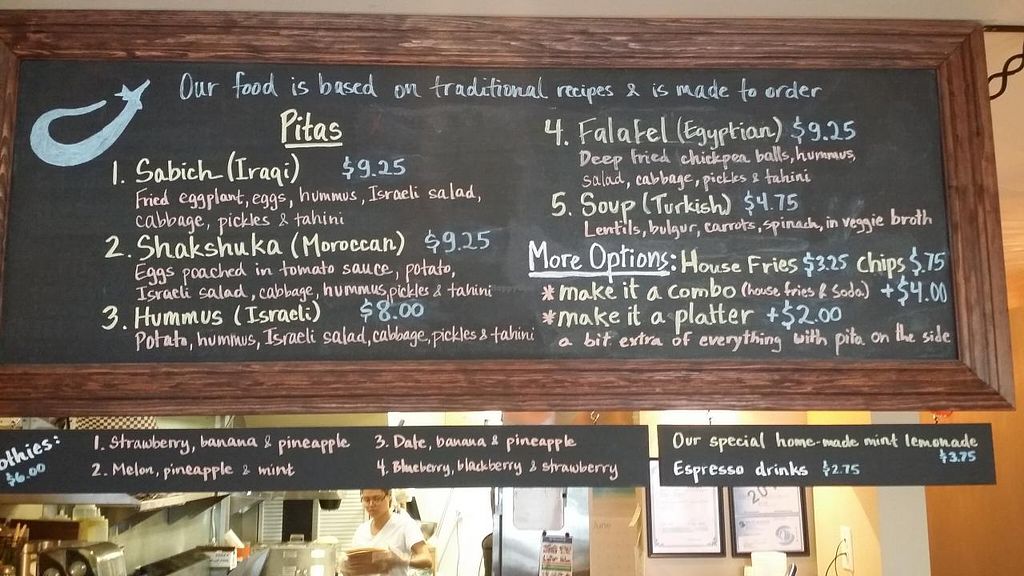 Our food is based on traditional recipes & is made to order
Pitas
1. Sabich (Iraqi) $9.25
Fried eggplant, eggs, hummus, Israeli salad,
cabbage, pickles & tahini
2. Shakshuka (Moroccan) $9.25
Eggs poached in tomato sauce, potato,
Israeli salad, cabbage, hummus, pickles & tahini
3. Hummus (Israeli) $8.00
Potato, hummus, Israeli salad, cabbage, pickles & tahini
4. Falafel (Egyptian) $9.25
Deep fried chickpea balls, hummus,
salad, cabbage, pickles & tahini
5. Soup (Turkish) $4.75
Lentils, bulgur, carrots, spinach, in veggie broth
More Options: House Fries $3.25 Chips $.75
*make it a combo (house fries & soda) +$4.00
*make it a platter +$2.00
a bit extra of everything with pita on the side
othies:
$6.00
1. Strawberry, banana & pineapple
2. Melon, pineapple & mint
3. Date, banana & pineapple
4. Blueberry, blackberry & strawberry
Our special home-made mint lemonade
$3.75
Espresso drinks $2.75
June